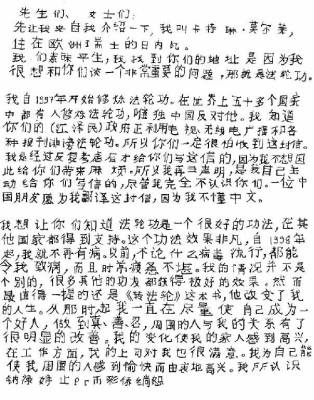 先生们、女士们:
先让我来自我介绍一下,我叫卡特琳·莫尔莱,
住在欧洲瑞士的日内瓦。
我们素昧平生,我找到你们的地址是因为我
很想和你们谈一个非常重要的问题,那就是法轮功。
我自1997年开始修炼法轮功。在世界上五十多个国家
中都有人修炼法轮功,唯独中国反对他。我知道
你们的(江泽民)政府正利用电视、无线电广播和各
种报刊诽谤法轮功。所以你们一定很怕收到这封信。
我是经过反复考虑后才给你们写这信的,因为我不想因
此给你们带来麻烦。所以我再三声明,是我自己主
动给你们写信的,尽管我完全不认识你们。一位中
国朋友愿为我翻译这封信,因为我不懂中文。
我想让你们知道法轮功是一个很好的功法,在其
他国家都得到支持。这个功法效果非凡,自1998年
起,我就不再有病。以前,不论什么病毒流行,都能
令我致病,而且时常疲惫不堪。我的情况并不是
个别的,很多其他的功友都获得极好的效果。然而
最值得一提的还是《转法轮》这本书,他改变了我
的人生。从那时起我一直在尽量使自己成为一
个好人,做到真、善、忍,周围的人与我的关系有了
很明显的改善。我的变化使我的家人感到高兴,
在工作方面,我的上司对我也很满意。我为自己能
使我周围的人感到愉快而由衷地高兴。我所认识